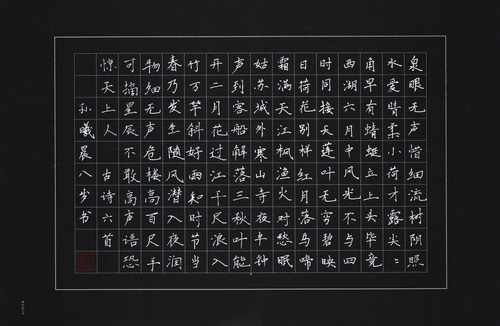 泉眼无声惜细流树阴照
水爱晴柔小荷才露尖〻
角早有蜻蜓立上头毕竟
西湖六月中风光不与四
时同接天莲叶无穷碧映
日荷花别样红月落乌啼
霜满天江枫渔火对愁眠
姑苏城外寒山寺夜半钟
声到客船解落三秋叶能
开二月花过江千尺浪入
竹万竿斜好雨知时节当
春乃发生随风潜入夜润
物细无声危楼高百尺手
可摘星辰不敢高声语恐
惊天上人 古诗六首
孙曦晨八岁书